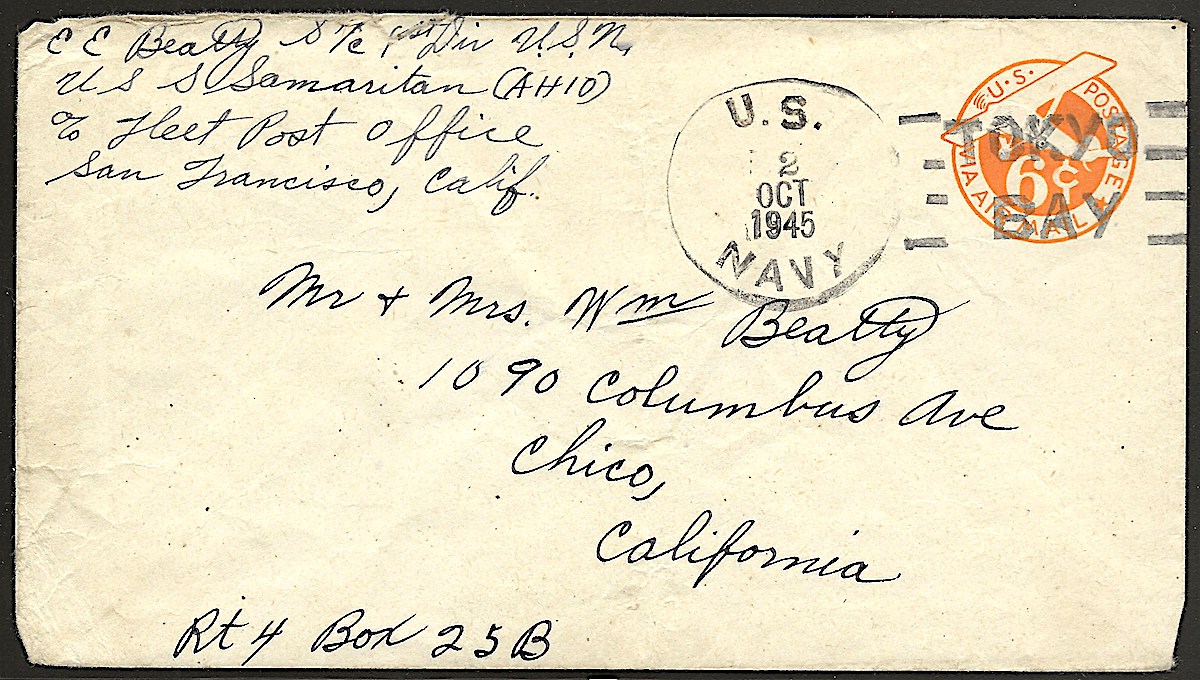 E E Beatty S 1/c, 1st Div U.S.N.
U S S Samaritan (AH10)
℅ Fleet Post Office
San Francisco, Calif.
U.S.
2
OCT
1945
NAVY
TOKYO
BAY
U.S. POSTAGE
VIA AIR MAIL
6¢
Mr + Mrs. Wm Beatty
1090 Columbus Ave
Chico,
California
Rt 4 Box 25B